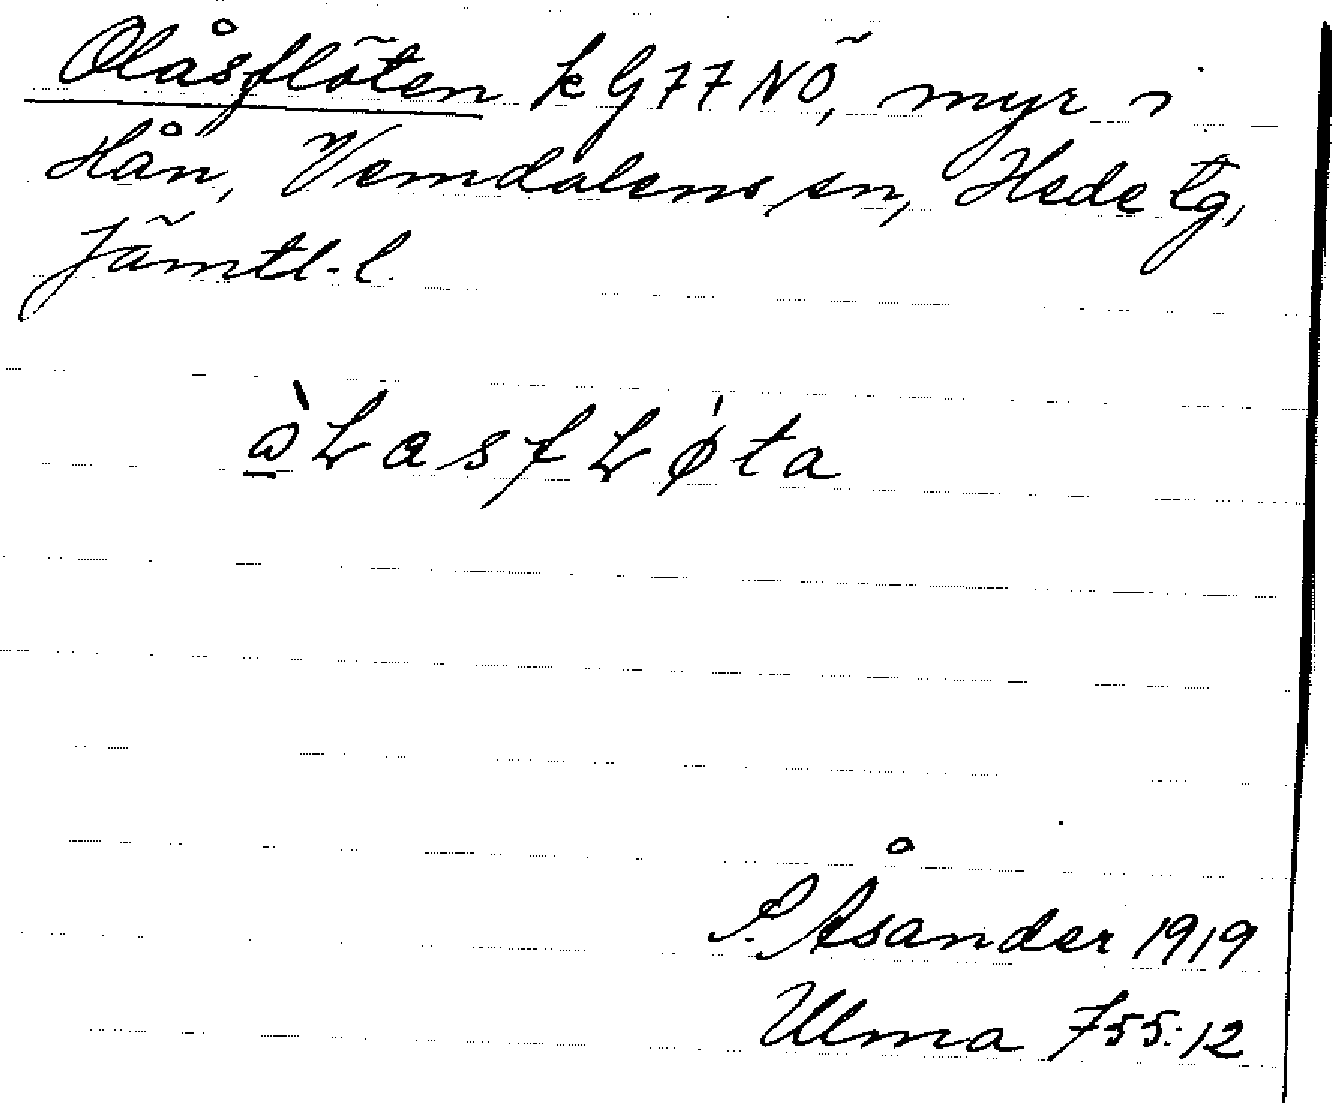 Olåsflöten k G77 NÖ, myr i
Hån, Vemdalens sn, Hede tg,
Jämtl. l.
ὰLasfLǿta
S. Åsander 1919
Ulma 755:12